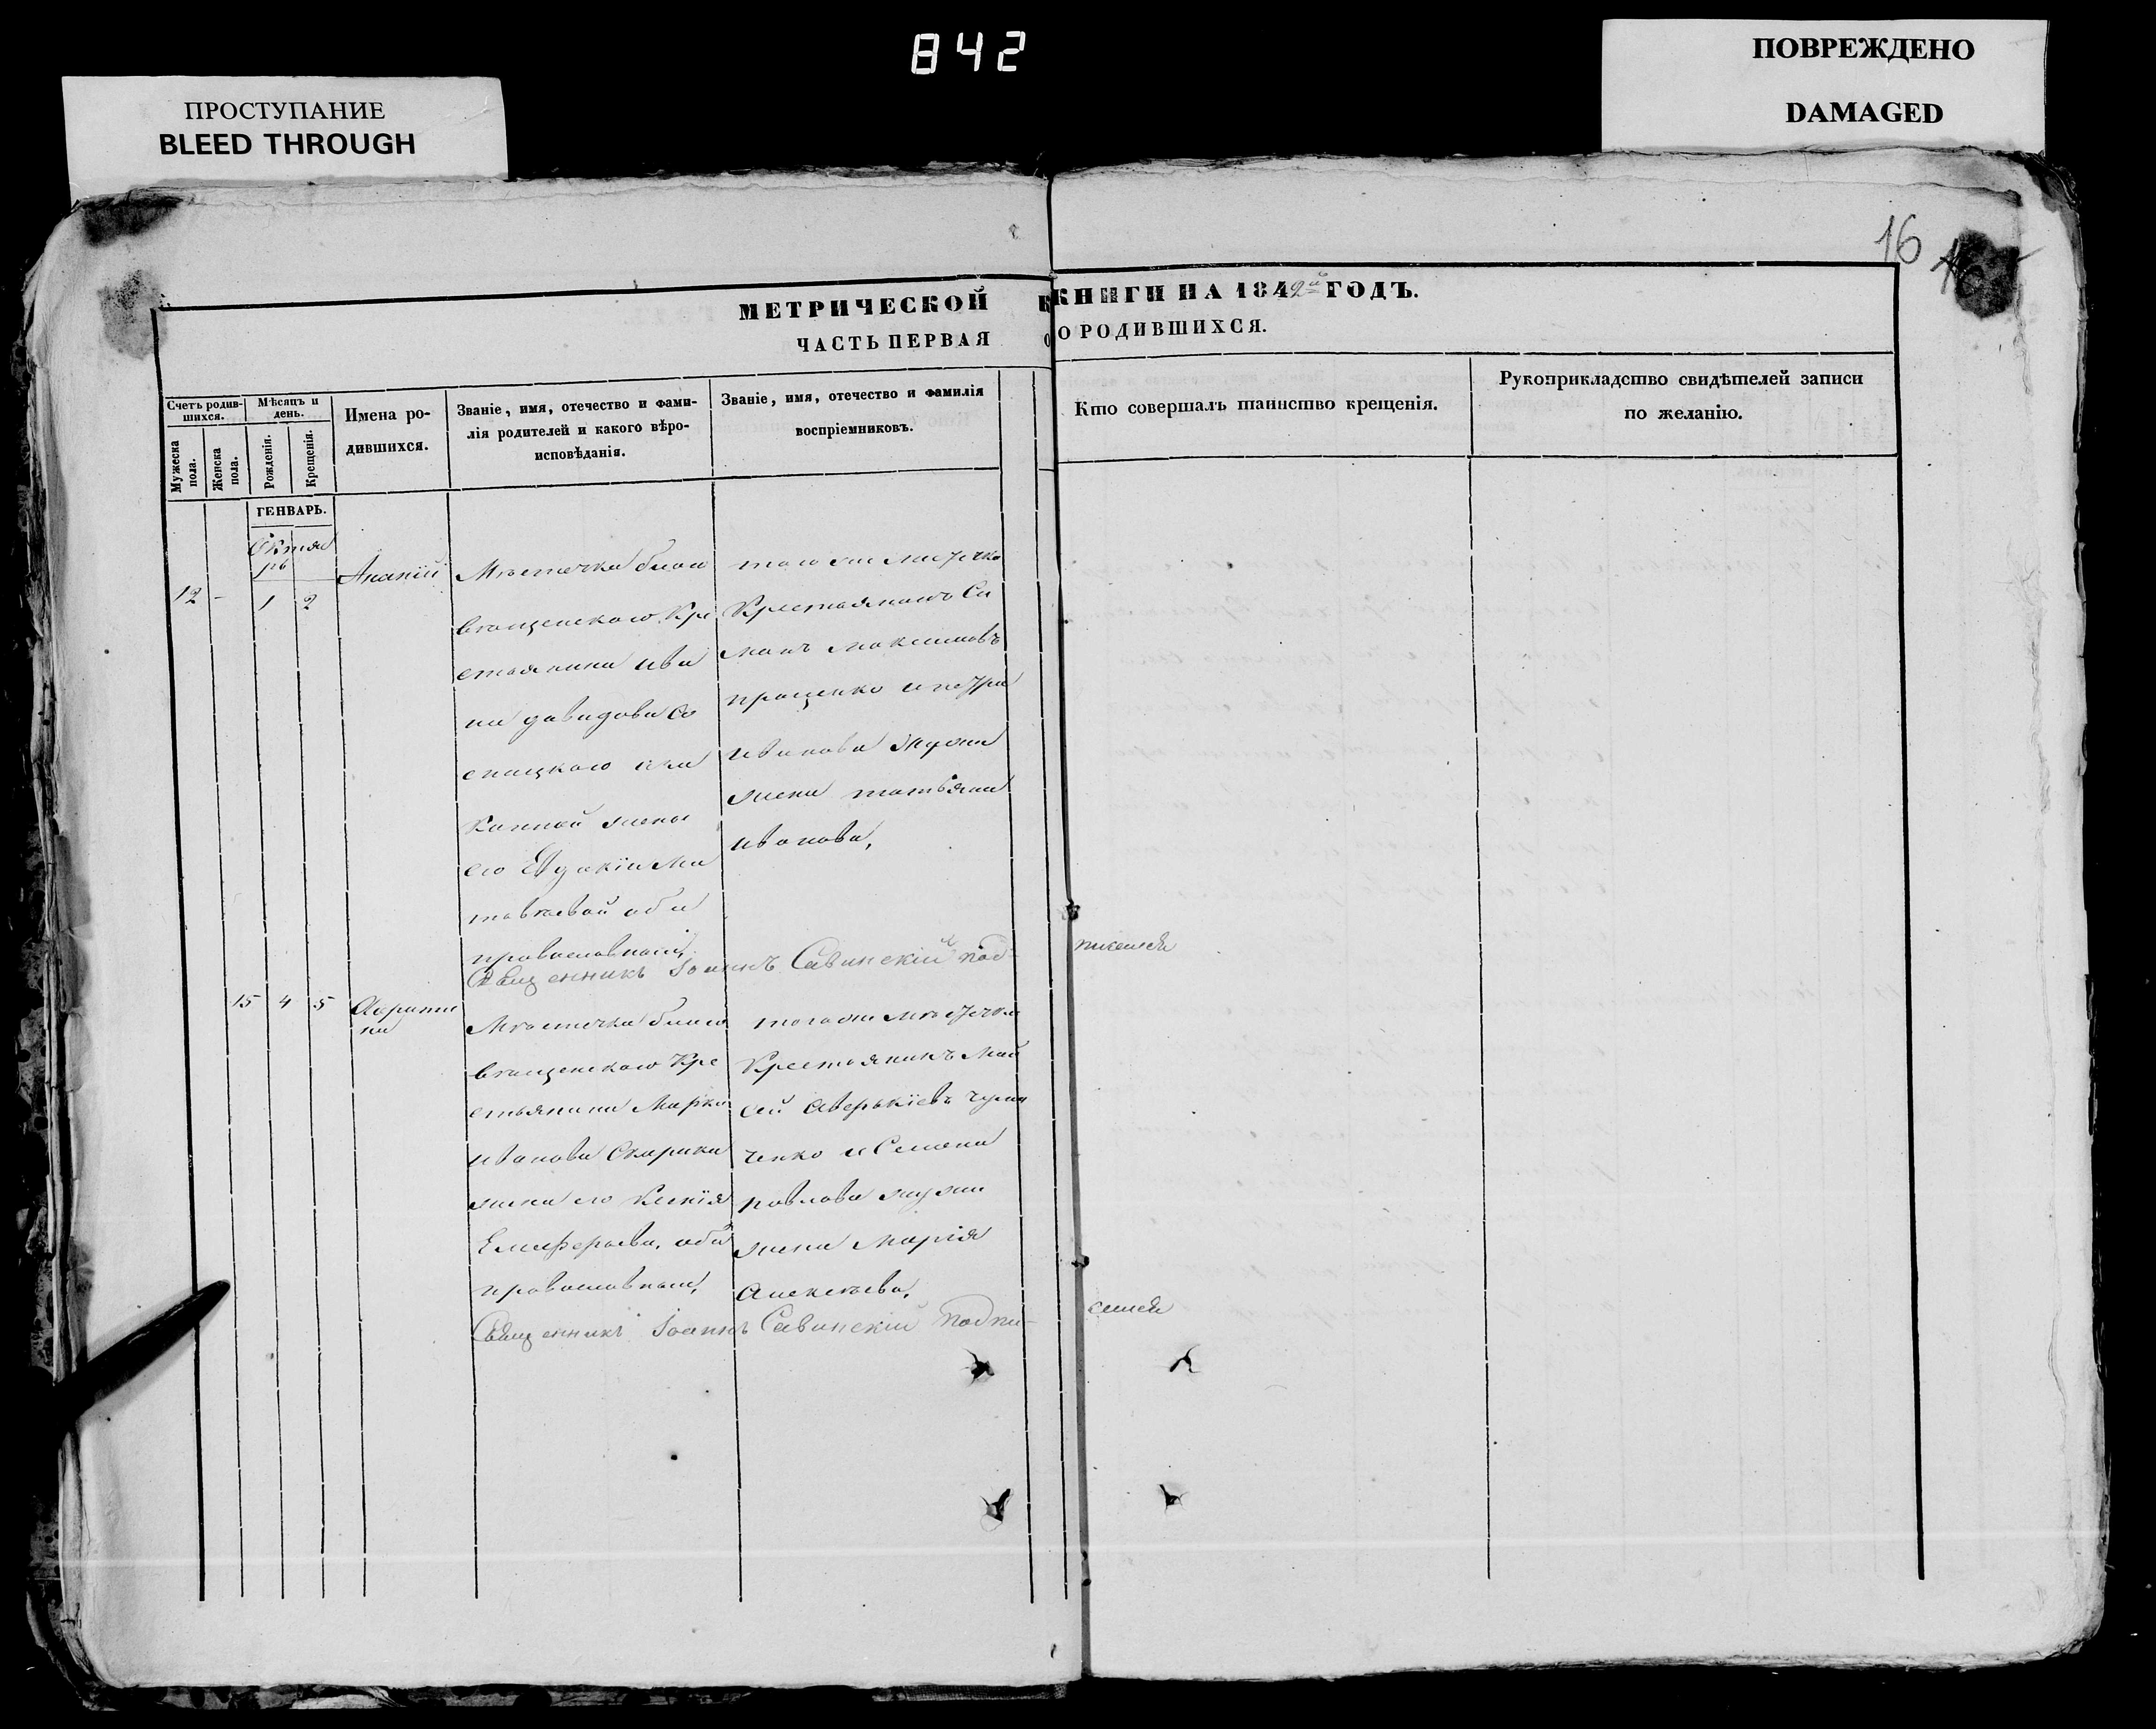 842
ПРОСТУПАНИЕ
BLEED THROUGH
ПОВРЕЖДЕНО
DAMAGED
16
МЕТРИЧЕСКОЙ КНИГИ НА 1842й ГОДЪ.
ЧАСТЬ ПЕРВАЯ О РОДИВШИХСЯ.
Счетъ родив-
шихся.
Мужеска
пола.
Женска
пола.
Мѣсяцъ и
день.
Рожденія.
Крещенія.
Имена ро-
дившихся.
Званіе, имя, отечество и фами-
лія родителей и какого вѣро-
исповѣданія.
Званіе, имя, отечество и фамилія
воспріемниковъ.
Кто совершалъ таинство крещенія.
Рукоприкладство свидѣтелей записи
по желанію.
ГЕНВАРЬ.
Октяб
рь
12 - 1 2
Ананій
Мѣстечка благо
вѣщенскаго Кре
стьянина Ива
на давидова
законной жены
его Евдокіи Ма
твѣевой оба
православный,
того же местечка
Крестьянинъ Си
монъ максимовъ
проценко и петра
иванова жука
жена татьяна
иванова,
Священникъ Іоаннъ Савинскій подписался
15 4 5
Мѣстечка благо
вѣщенскаго Кре
стьянина Марка
иванова Скарика
жена его Ксенія
Елиферьева, оба
православныи,
того же мѣстечка
Крестьянинъ Мой
сей Аверькіевъ
ченко и Семена
павлова
жена Марія
Алексѣева,
Священникъ Іоаннъ Савинскій подписался